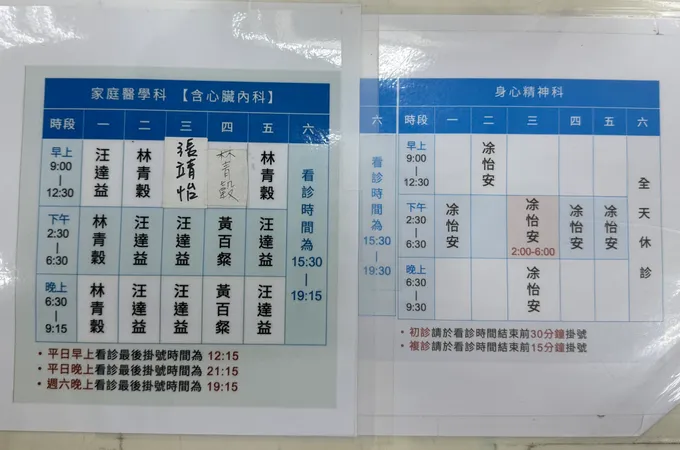 家庭醫學科 【含心臟內科】
時段 一 二 三 四 五 六
早上 9:00 | 12:30 汪達益 林青穀 張靖怡 林青穀 林青穀
下午 2:30 | 6:30 林青穀 汪達益 汪達益 黃百粲 汪達益
晚上 6:30 | 9:15 林青穀 汪達益 汪達益 黃百粲 汪達益
看診時間為 15:30 | 19:15
•平日早上看診最後掛號時間為 12:15
•平日晚上看診最後掛號時間為 21:15
•週六晚上看診最後掛號時間為 19:15
六
看診時間為 15:30 | 19:30
身心精神科
時段 一 二 三 四 五 六
早上 9:00 | 12:30 凃怡安
下午 2:30 | 6:30 凃怡安 凃怡安 2:00-6:00 凃怡安 凃怡安
晚上 6:30 | 9:30 凃怡安
全天休診
•初診請於看診時間結束前30分鐘掛號
•複診請於看診時間結束前15分鐘掛號